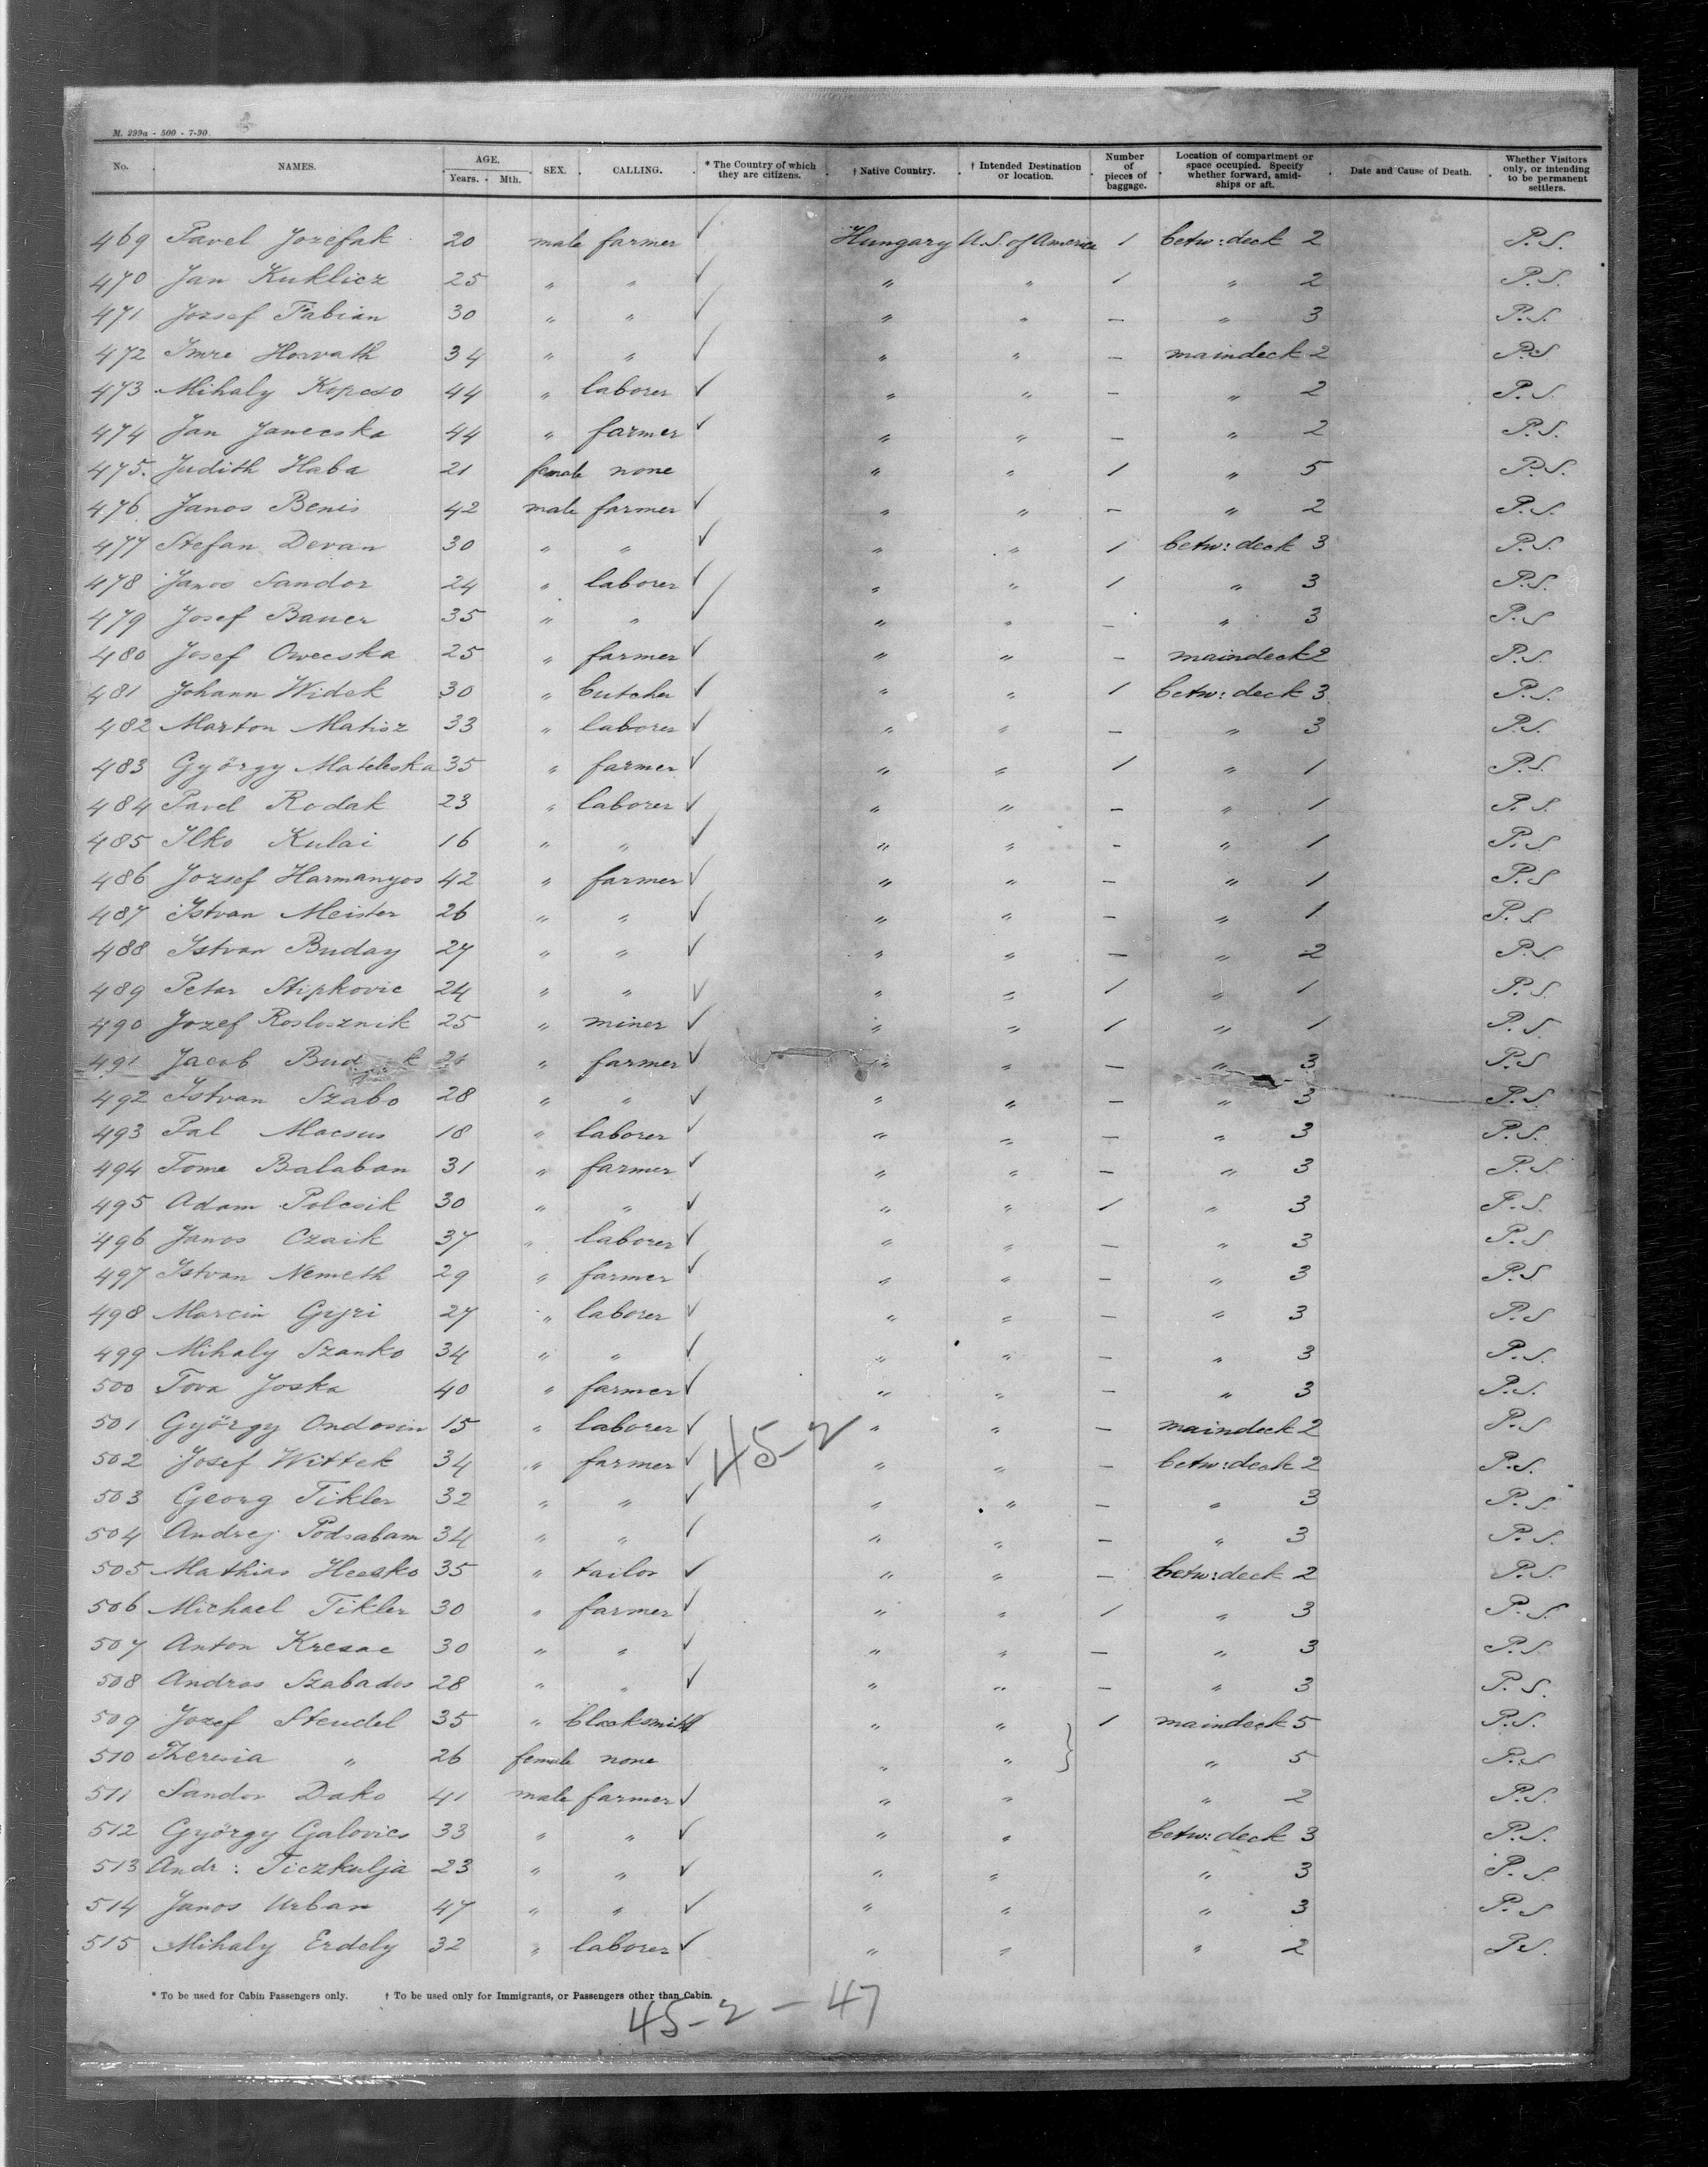 M. 299a - 500 - 7-90.
No. NAMES. AGE. Years. Mth. SEX. CALLING. * The Country of which they are citizens. † Native Country. † Intended Destination or location. Number of pieces of baggage. Location of compartment or space occupied. Specify whether forward, amidships or aft. Date and Cause of Death. Whether Visitors only, or intending to be permanent settlers.
469 Pavel Jozefak 20 male farmer ✓ Hungary U.S. of America 1 betw: deck 2 P.S.
470 Jan Kuklicz 25 " " ✓ " " 1 " 2 P.S.
471 Jozsef Fabian 30 " " ✓ " " — " 3 P.S.
472 Imre Horvath 34 " " ✓ " " — maindeck 2 P.S.
473 Mihaly Kopcso 44 " laborer ✓ " " — " 2 P.S.
474 Jan Janecska 44 " farmer ✓ " " — " 2 P.S.
475. Judith Haba 21 female none " " 1 " 5 P.S.
476 Janos Benis 42 male farmer ✓ " " — " 2 P.S.
477 Stefan Devan 30 " " ✓ " " 1 betw: deck 3 P.S.
478 Janos Sandor 24 " laborer ✓ " " 1 " 3 P.S.
479 Josef Bauer 35 " " ✓ " " — " 3 P.S
480 Josef Oweeska 25 " farmer ✓ " " — maindeck 2 P.S.
481 Johann Widek 30 " butcher ✓ " " 1 betw: deck 3 P.S.
482 Marton Matisz 33 " laborer ✓ " " — " 3 P.S.
483 György Mateleska 35 " farmer ✓ " " 1 " 1 P.S.
484 Pavel Rodak 23 " laborer ✓ " " — " 1 P.S.
485 Ilko Kulai 16 " " ✓ " " - " 1 P.S
486 Jozsef Harmanyos 42 " farmer ✓ " " — " 1 P.S
487 Istvan Meister 26 " " ✓ " " — " 1 P.S
488 Istvan Buday 27 " " ✓ " " — " 2 P.S
489 Petar Stipkovic 24 " " ✓ " " 1 " 1 P.S.
490 Jozef Roslosznik 25 " miner ✓ " " 1 " 1 P.S
491 Jacob " farmer ✓ " " — " 3 P.S
492 Istvan Szabo 28 " " ✓ " " — " 3 P.S.
493 Pal Macsus 18 " laborer ✓ " " — " 3 P.S.
494 Tome Balaban 31 " farmer ✓ " " — " 3 P.S.
495 Adam Polcsik 30 " " ✓ " " 1 " 3 P.S.
496 Janos Czaik 37 " laborer ✓ " " — " 3 P.S
497 Istvan Nemeth 29 " farmer ✓ " " — " 3 P.S
498 Marcin Gyri 27 " laborer ✓ " " — " 3 P.S
499 Mihaly Szanko 34 " " ✓ " " — " 3 P.S.
500 Tova Joska 40 " farmer ✓ " " — " 3 P.S.
501 György Ondosin 15 " laborer ✓ " " — maindeck 2 P.S
45-2
502 Josef Wittek 34 " farmer ✓ " " — betw: deck 2 P.S.
503 Georg Tikler 32 " " ✓ " " — " 3 P.S.
504 Andrej Podsabam 34 " " ✓ " " — " 3 P.S.
505 Mathias 35 " tailor ✓ " " — betw: deck 2 P.S.
506 Michael Tikler 30 " farmer ✓ " " 1 " 3 P.S.
507 Anton Kresac 30 " " ✓ " " — " 3 P.S.
508 Andras Szabados 28 " " ✓ " " — " 3 P.S.
509 Jozef Steudel 35 " blacksmith ✓ " " } 1 maindeck 5 P.S.
510 Theresia " 26 female none " " " 5 P.S
511 Sandor Dako 41 male farmer ✓ " " " 2 P.S.
512 György Galovics 33 " " ✓ " " betw: deck 3 P.S.
513 Andr: Ticzkulja 23 " " ✓ " " " 3 P.S.
514 Janos Urban 47 " " ✓ " " " 3 P.S
515 Mihaly Erdely 32 " laborer ✓ " " " 2 P.S.
* To be used for Cabin Passengers only. † To be used only for Immigrants, or Passengers other than Cabin.
45-2 - 47